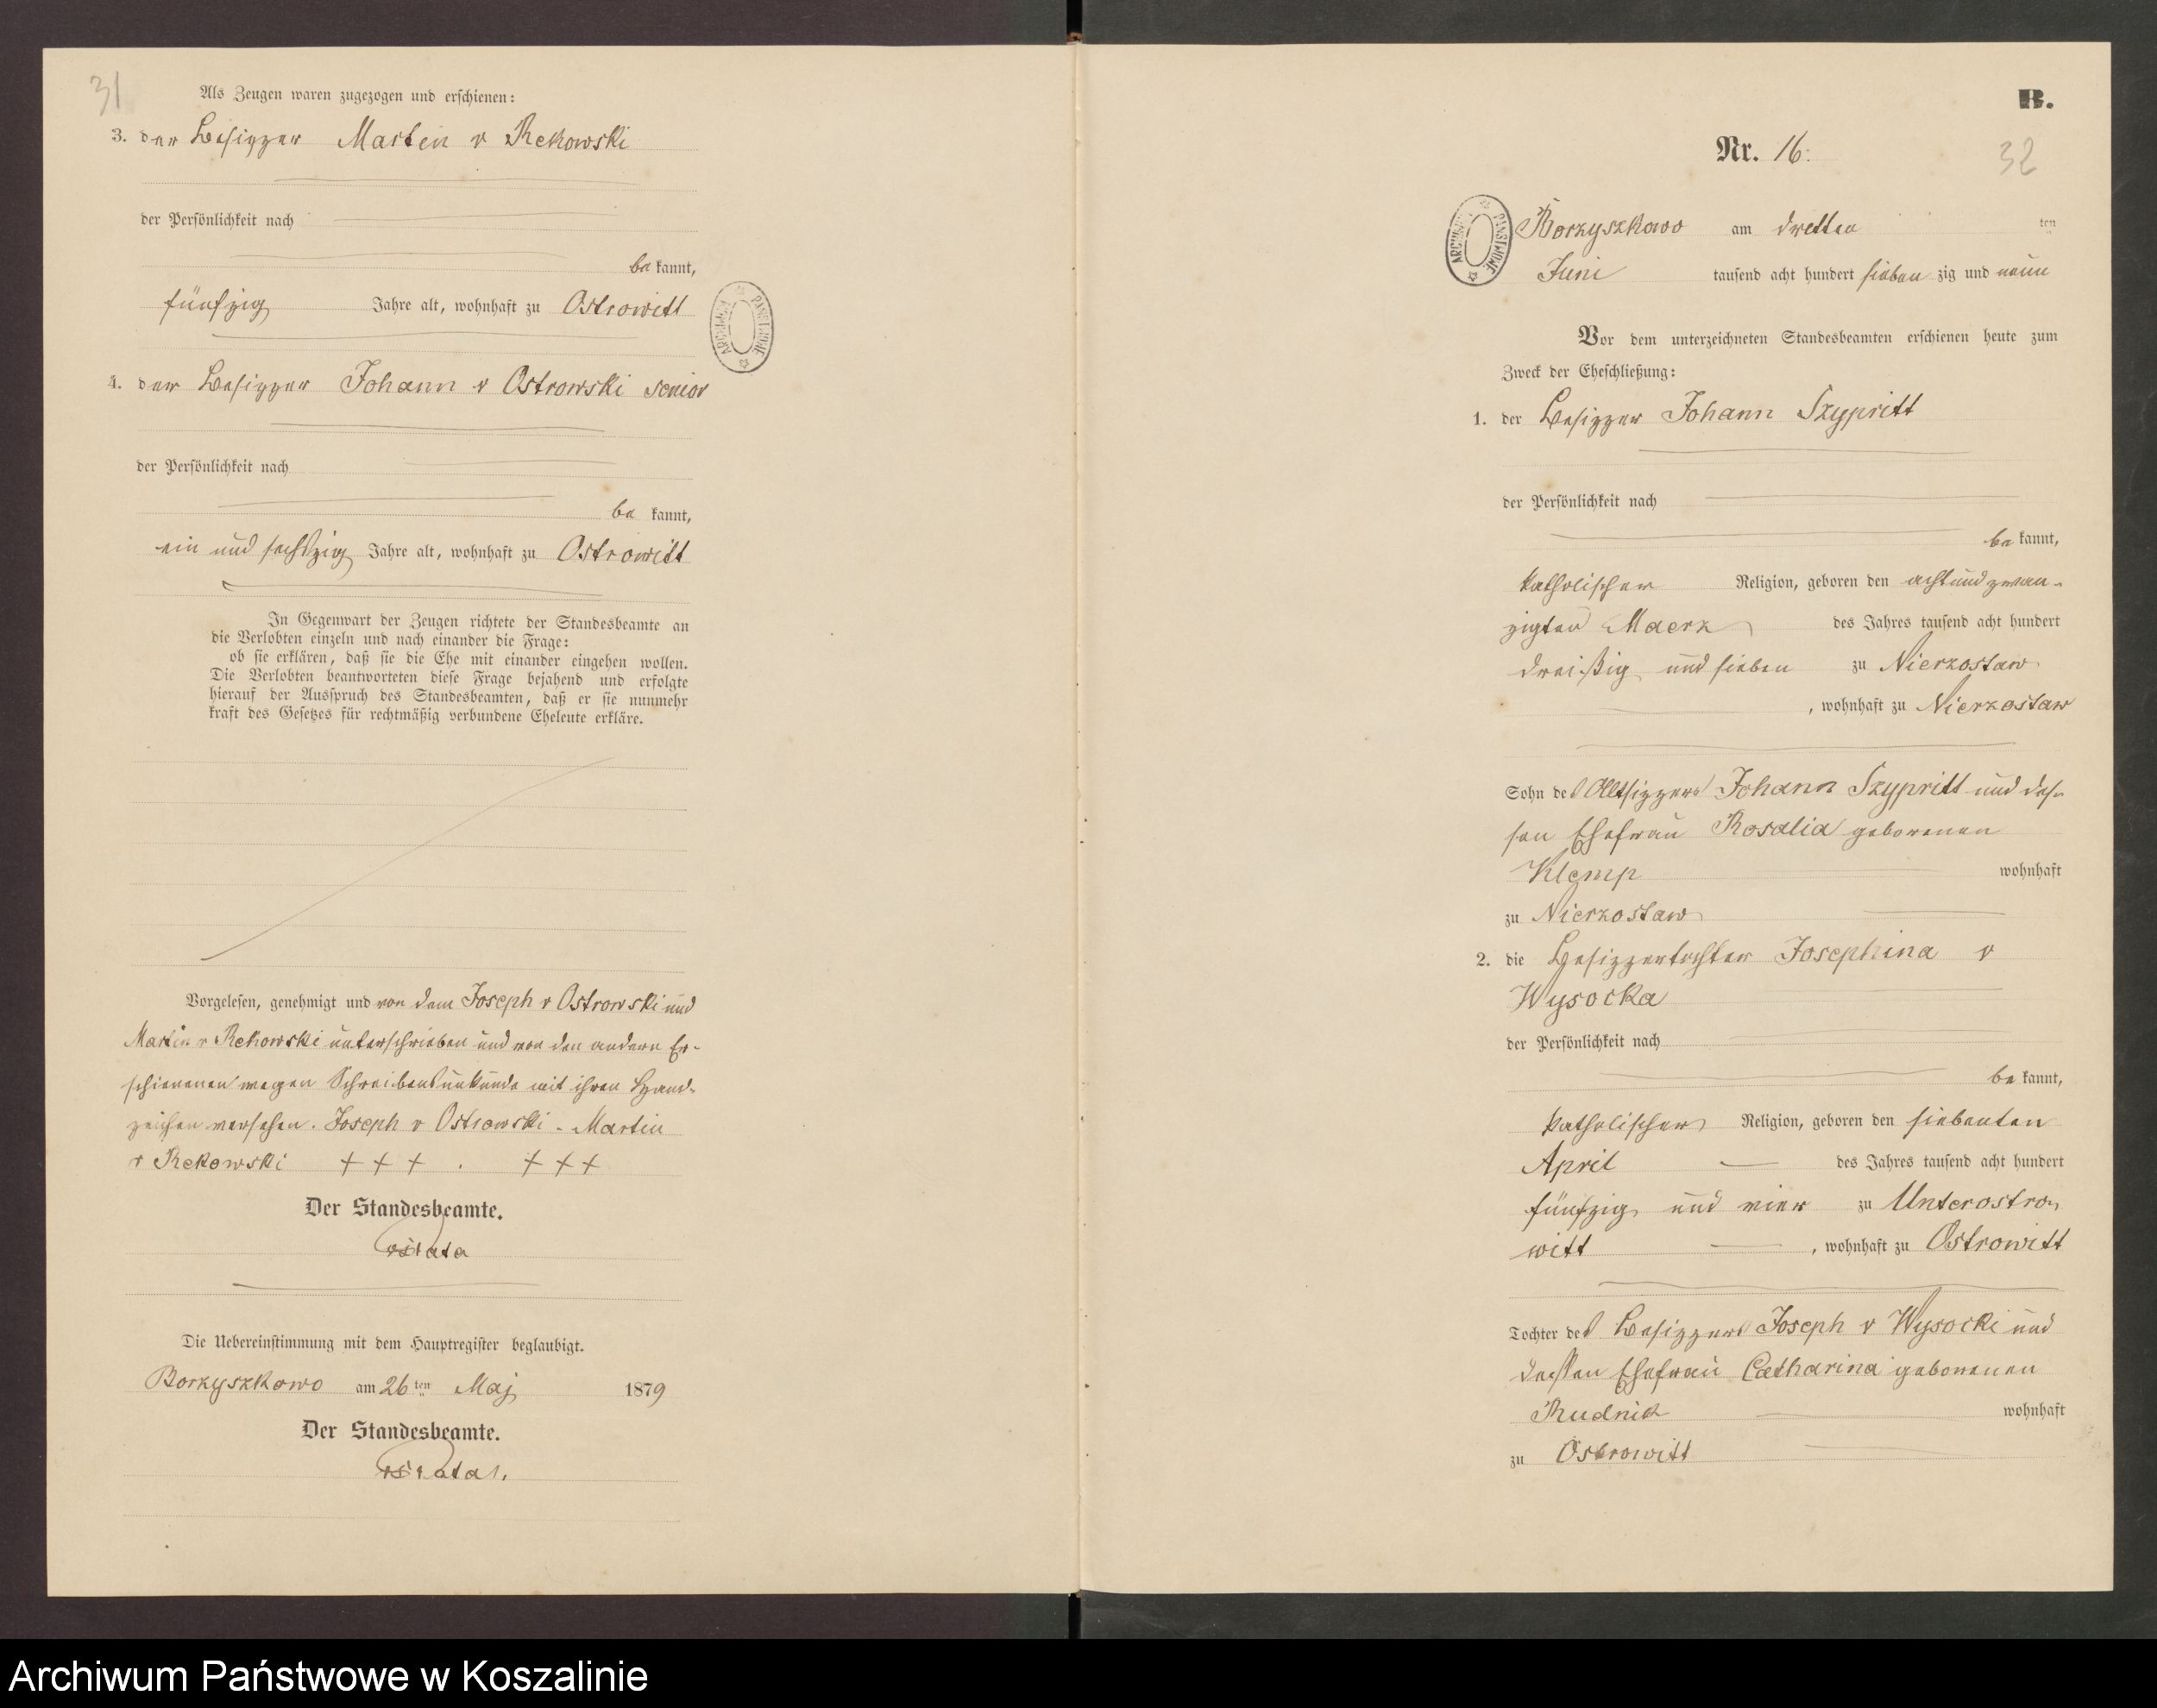 31
Als Zeugen waren zugezogen und erschienen:
3. der Besizzer Martin v Rekowski
der Persönlichkeit nach
be kannt,
fünfzig Jahre alt, wohnhaft zu Ostrowitt
4. der Besizzer Johann v Ostrowski senior
der Persönlichkeit nach
be kannt,
ein und sechszig Jahre alt, wohnhaft zu Ostrowitt
In Gegenwart der Zeugen richtete der Standesbeamte an
die Verlobten einzeln und nach einander die Frage:
ob sie erklären, daß sie die Ehe mit einander eingehen wollen.
Die Verlobten beantworteten diese Frage bejahend und erfolgte
hierauf der Ausspruch des Standesbeamten, daß er sie nunmehr
kraft des Gesetzes für rechtmäßig verbundene Eheleute erkläre.
Vorgelesen, genehmigt und von dem Joseph v Ostrowski und
Martin v Rekowski unterschrieben und von den andern Er-
schienenen wegen Schreibensunkunde mit ihren Hand-
zeichen versehen. Joseph v Ostrowski - Martin
v Rekowski + + + . + + +
Der Standesbeamte.
Die Uebereinstimmung mit dem Hauptregister beglaubigt.
Borzyszkowo am 26 ten Maj 1879
Der Standesbeamte.
B.
Nr. 16.
32
ARCHIWUM PAŃSTWOWE
Borzyszkowo am dritten ten
Juni tausend acht hundert sieben zig und neun
Vor dem unterzeichneten Standesbeamten erschienen heute zum
Zweck der Eheschließung:
1. der Besizzer Johann Szypritt
der Persönlichkeit nach
be kannt,
katholischer Religion, geboren den achtundzwan-
zigten Maerz des Jahres tausend acht hundert
dreißig und sieben zu Nierzostaw
, wohnhaft zu Nierzostaw
Sohn des Altsizzers Johann Szypritt und des-
sen Ehefrau Rosalia geborenen
Klemp wohnhaft
zu Nierzostaw
2. die Besizzertochter Josephina v
Wysocka
der Persönlichkeit nach
be kannt,
katholischer Religion, geboren den siebenten
April des Jahres tausend acht hundert
fünfzig und vier zu Unterostro-
witt , wohnhaft zu Ostrowitt
Tochter des Besizzers Joseph v Wysocki und
dessen Ehefrau Catharina geborenen
Rudnik wohnhaft
zu Ostrowitt
Archiwum Państwowe w Koszalinie